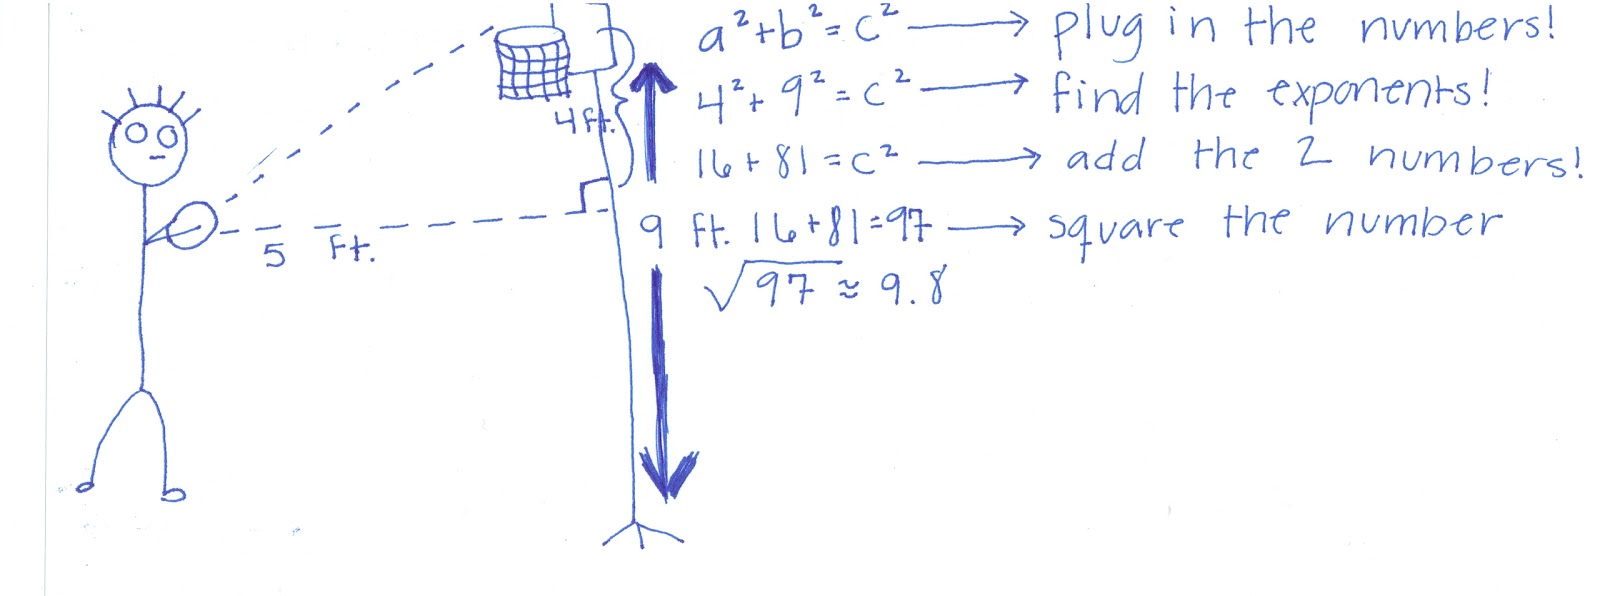 a²+b²=c² → plug in the numbers!
4²+9²=c² → find the exponents!
4ft.
16+81=c² → add the 2 numbers!
9 ft. 16+81=97 → square the number
5 Ft.
√97 ≈ 9.8